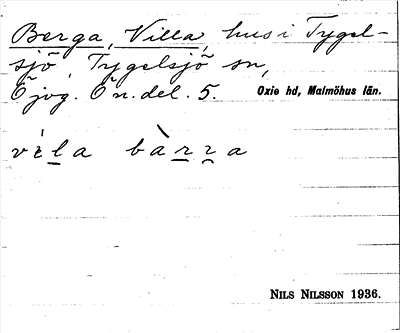 Berga, Villa, hus i Tygel-
sjö, Tygelsjö sn,
Öjog. Ön. del. 5. Oxie hd, Malmöhus län.
vìla bàrra
NILS NILSSON 1936.